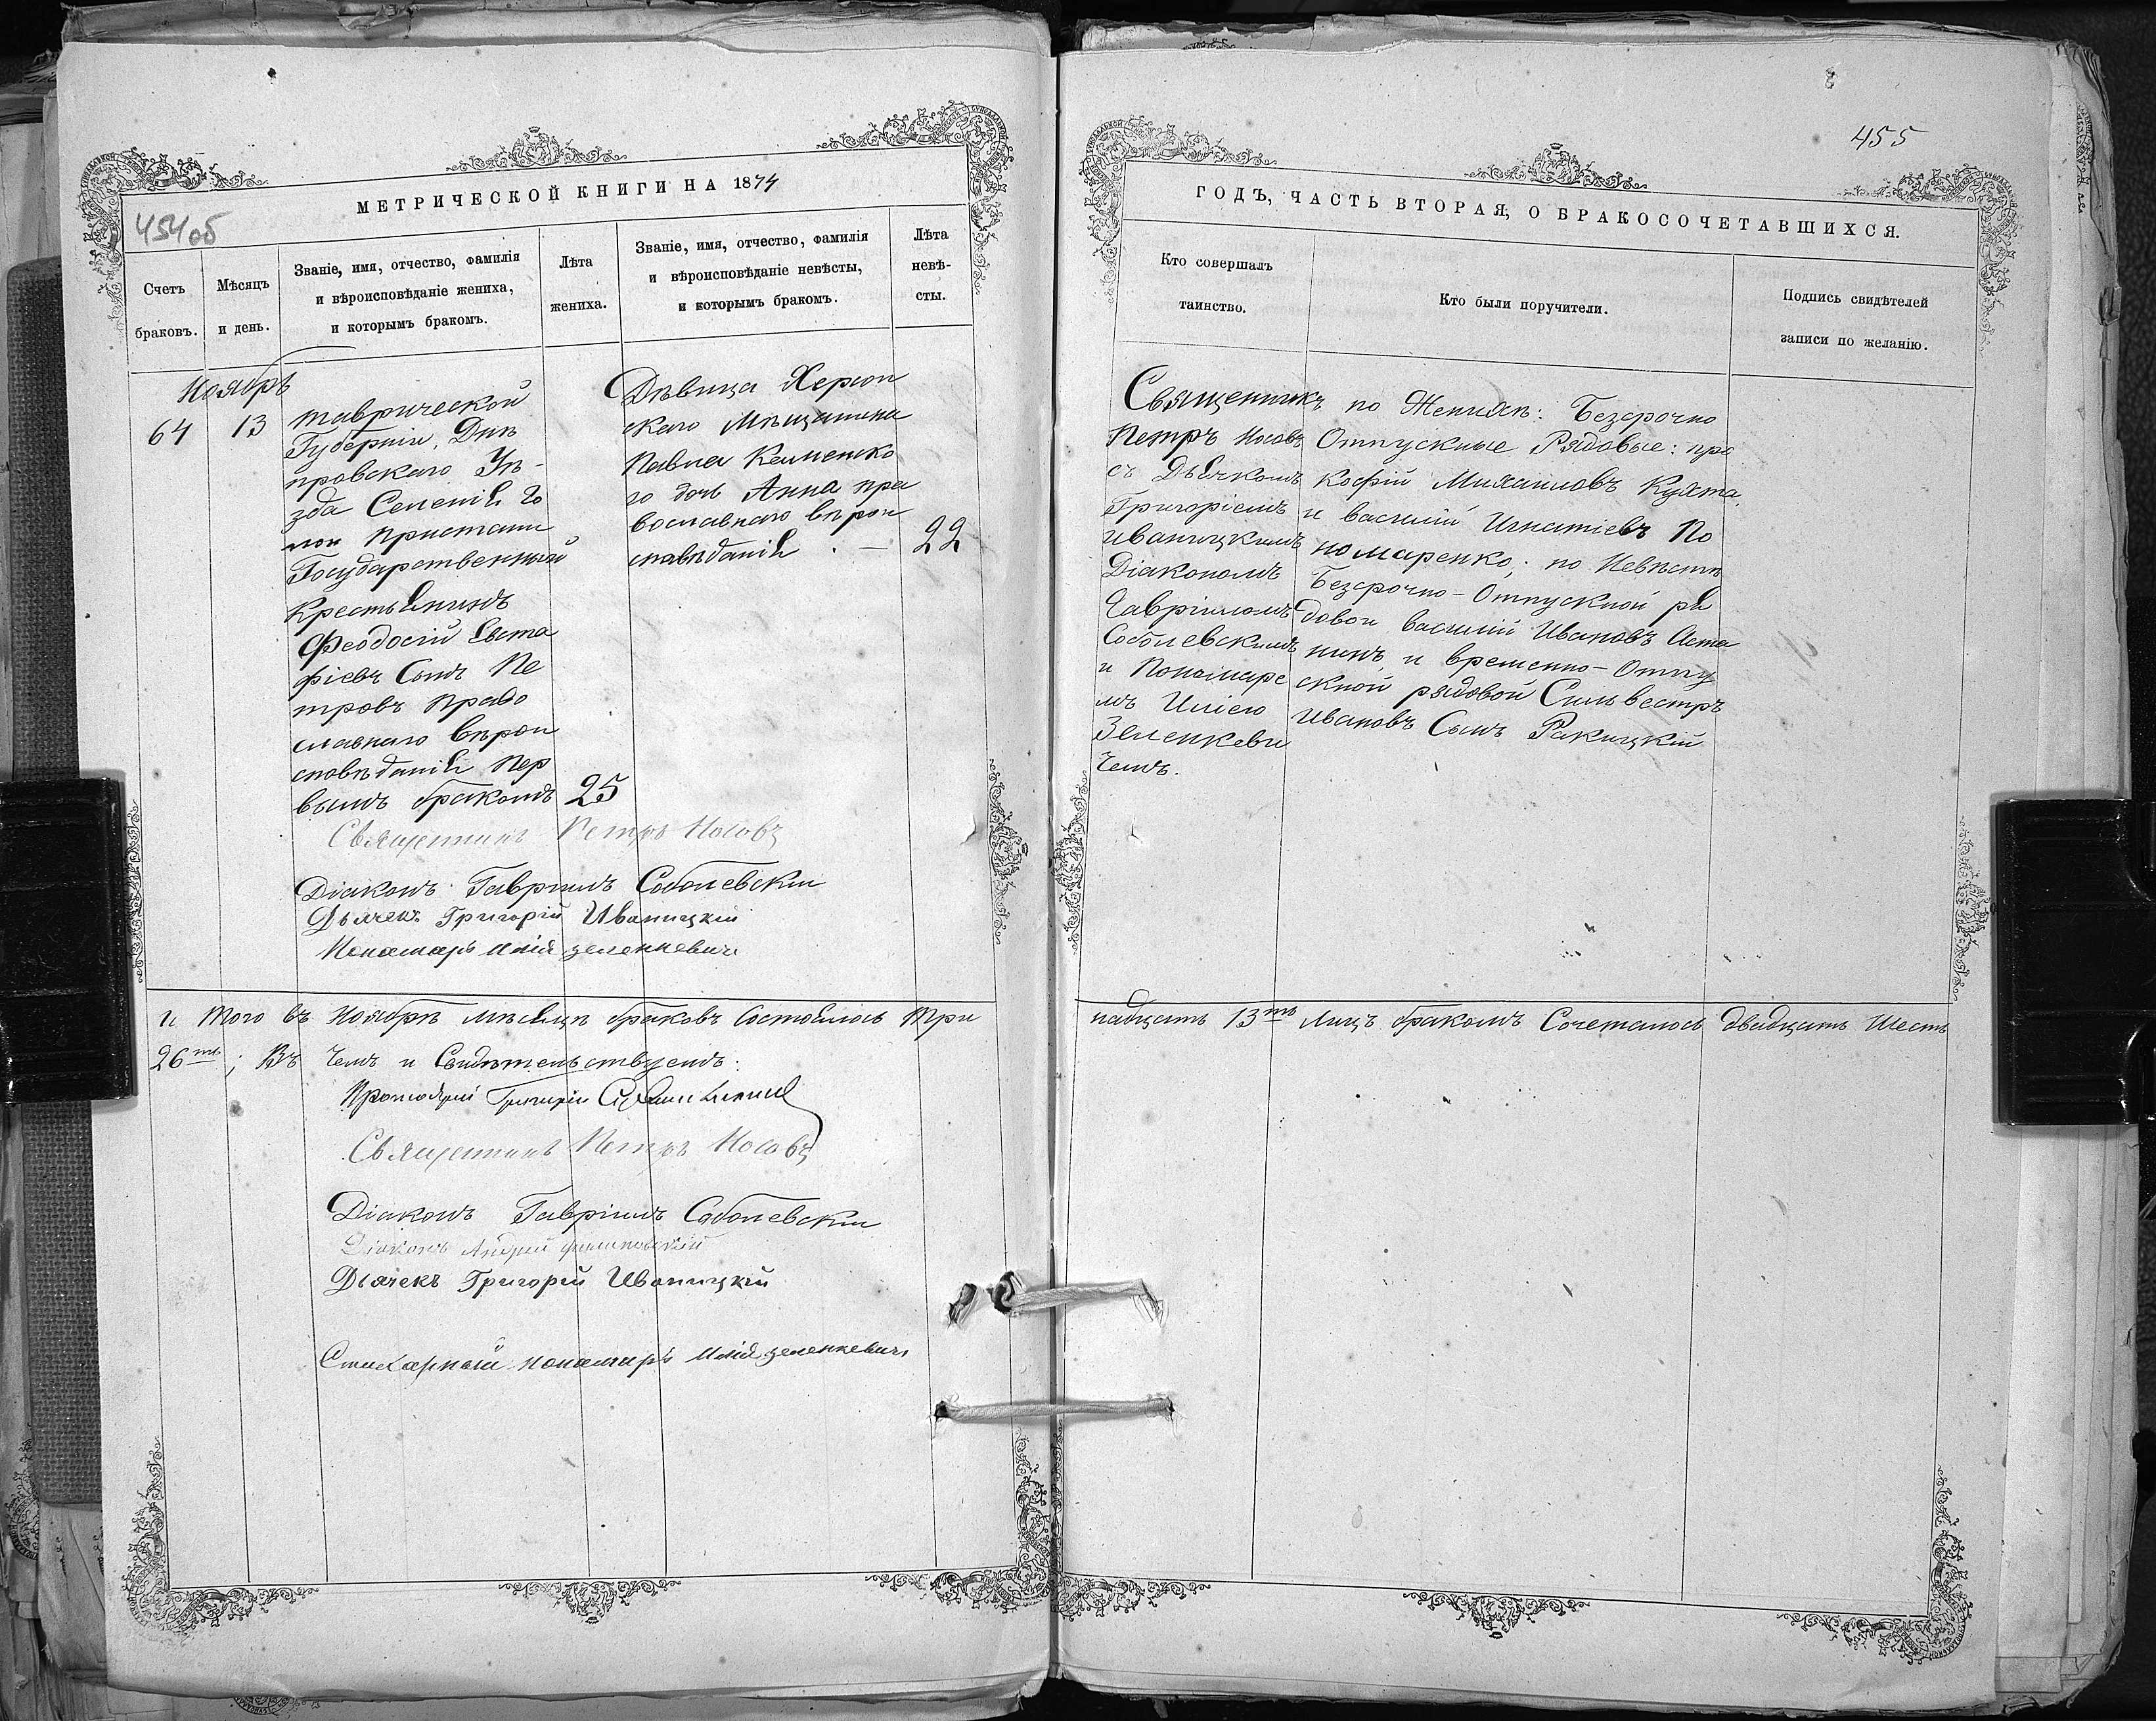 МЕТРИЧЕСКОЙ КНИГИ НА 1874
454об
Счетъ браковъ.
Мѣсяцъ и день.
Званіе, имя, отчество, фамилія
и вѣроисповѣданіе жениха,
и которымъ бракомъ.
Лѣта жениха.
Званіе, имя, отчество, фамилія
и вѣроисповѣданіе невѣсты,
и которымъ бракомъ.
Лѣта невѣ-
сты.
Ноябрь
64
13
Таврической
Губерніи, Днѣ
провскаго Уѣ-
зда Селенія Го
лои Пристани
Государственный
Крестьянинъ
Феодосій Евста
фіевъ Сынъ Пе
тровъ Право
славнаго вѣрои
сповѣданія Пер
вымъ бракомъ
25
Дѣвица Херсон
скаго Мѣщанина
Павла Каменско
го дочь Анна пра
вославнаго вѣрои
сповѣданія . —
22
Священникъ Петръ Носовъ
Діаконъ Гавріилъ Соболевскіи
Дьячекъ Григорій Иваницкій
Понамарь Илія зеленкевичь
и того въ Ноябрѣ мѣсяцѣ браковъ Состоялось Три
26ть; Въ Чемъ и Свидѣтельствуемъ:
Протоіерей Григорій
Священникъ Петръ Носовъ
Діаконъ Гавріилъ Соболевскіи
Діаконъ Андрей
Дьячекъ Григорій Иваницкій
Стихарный понамарь Илія зеленкевичь
455
ГОДЪ, ЧАСТЬ ВТОРАЯ, О БРАКОСОЧЕТАВШИХСЯ.
Кто совершалъ
таинство.
Кто были поручители.
Подпись свидѣтелей
записи по желанію.
Священникъ
Петръ Носовъ
съ Дьячкомъ
Григоріемъ
Иваницкимъ
Діакономъ
Гавріиломъ
Соболевскимъ
и Пономаре
мъ Иліею
Зеленкеви
чемъ.
по Женихѣ: Безсрочно
Отпускные Рядовые: про
кофій Михаиловъ Кухта,
и василій Игнатіевъ По
номаренко; по Невѣстѣ
Безсрочно-Отпускной ря
довои василій Ивановъ Аста
нинъ и временно-Отпу
скной рядовой Сильвестръ
Ивановъ Сынъ Ракицкій
надцать 13ть Лицъ бракомъ Сочеталось двадцать Шесть